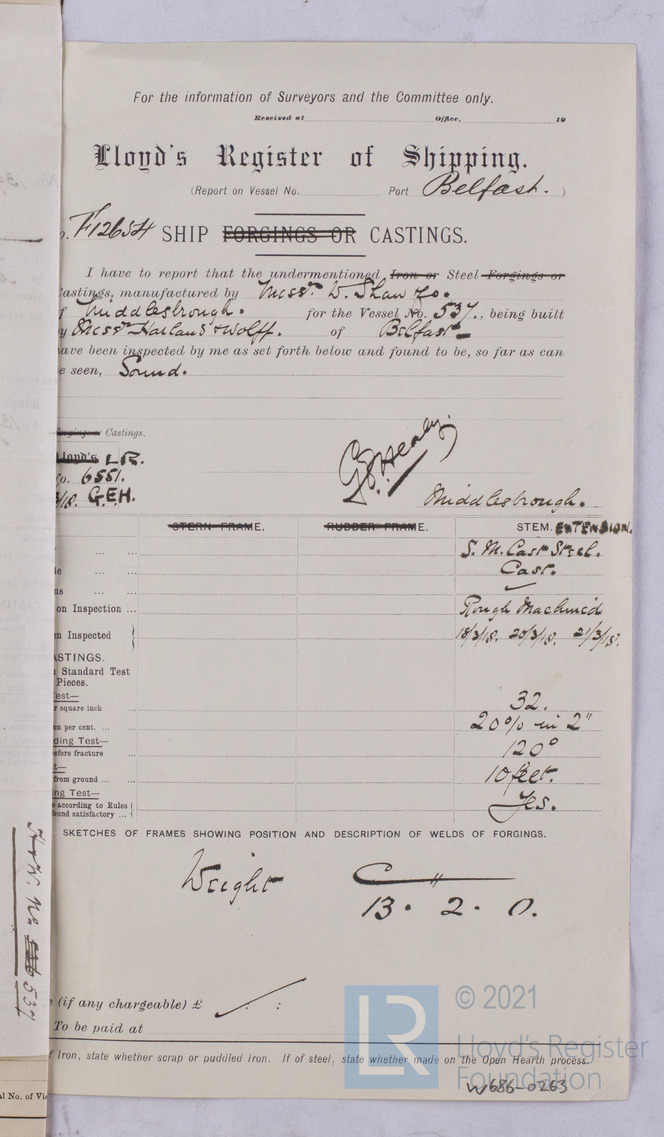 For the information of Surveyors and the Committee only.
Received at Office, 19
Lloyd's Register of Shipping.
(Report on Vessel No. Port Belfast. )
o. F12654 SHIP FORGINGS OR CASTINGS.
I have to report that the undermentioned Iron or Steel Forgings or
Castings, manufactured by Messrs W. Shaw & Co.
of Middlesbrough. for the Vessel No. 537., being built
by Messrs Harland & Wolff. of Belfast
have been inspected by me as set forth below and found to be, so far as can
be seen, Sound.
Forgings or Castings.
Lloyd's LR.
No. 6551.
3/18. G.E.H.
Middlesbrough.
STERN FRAME. RUDDER FRAME. STEM. EXTENSION.
... ... S. M. Cast Steel.
de ... ... Cast.
ns ... ...
on Inspection ... Rough Machined
en Inspected 18/3/18. 20/3/18. 21/3/18.
CASTINGS.
Standard Test
Pieces.
est—
r square inch ... 32.
on per cent. ... ... 20% in 2"
ding Test—
before fracture ... 120°
t—
from ground ... ... 10 feet.
ng Test—
e according to Rules
found satisfactory ... Yes.
SKETCHES OF FRAMES SHOWING POSITION AND DESCRIPTION OF WELDS OF FORGINGS.
Weight C "
13. 2. 0.
H & W. No 537
e (if any chargeable) £ : :
To be paid at
f Iron, state whether scrap or puddled iron. If of steel, state whether made on the Open Hearth process.
al No. of Vis
LR © 2021
Lloyd's Register
Foundation
W686-0263